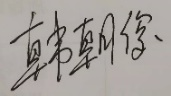 韩朝俊